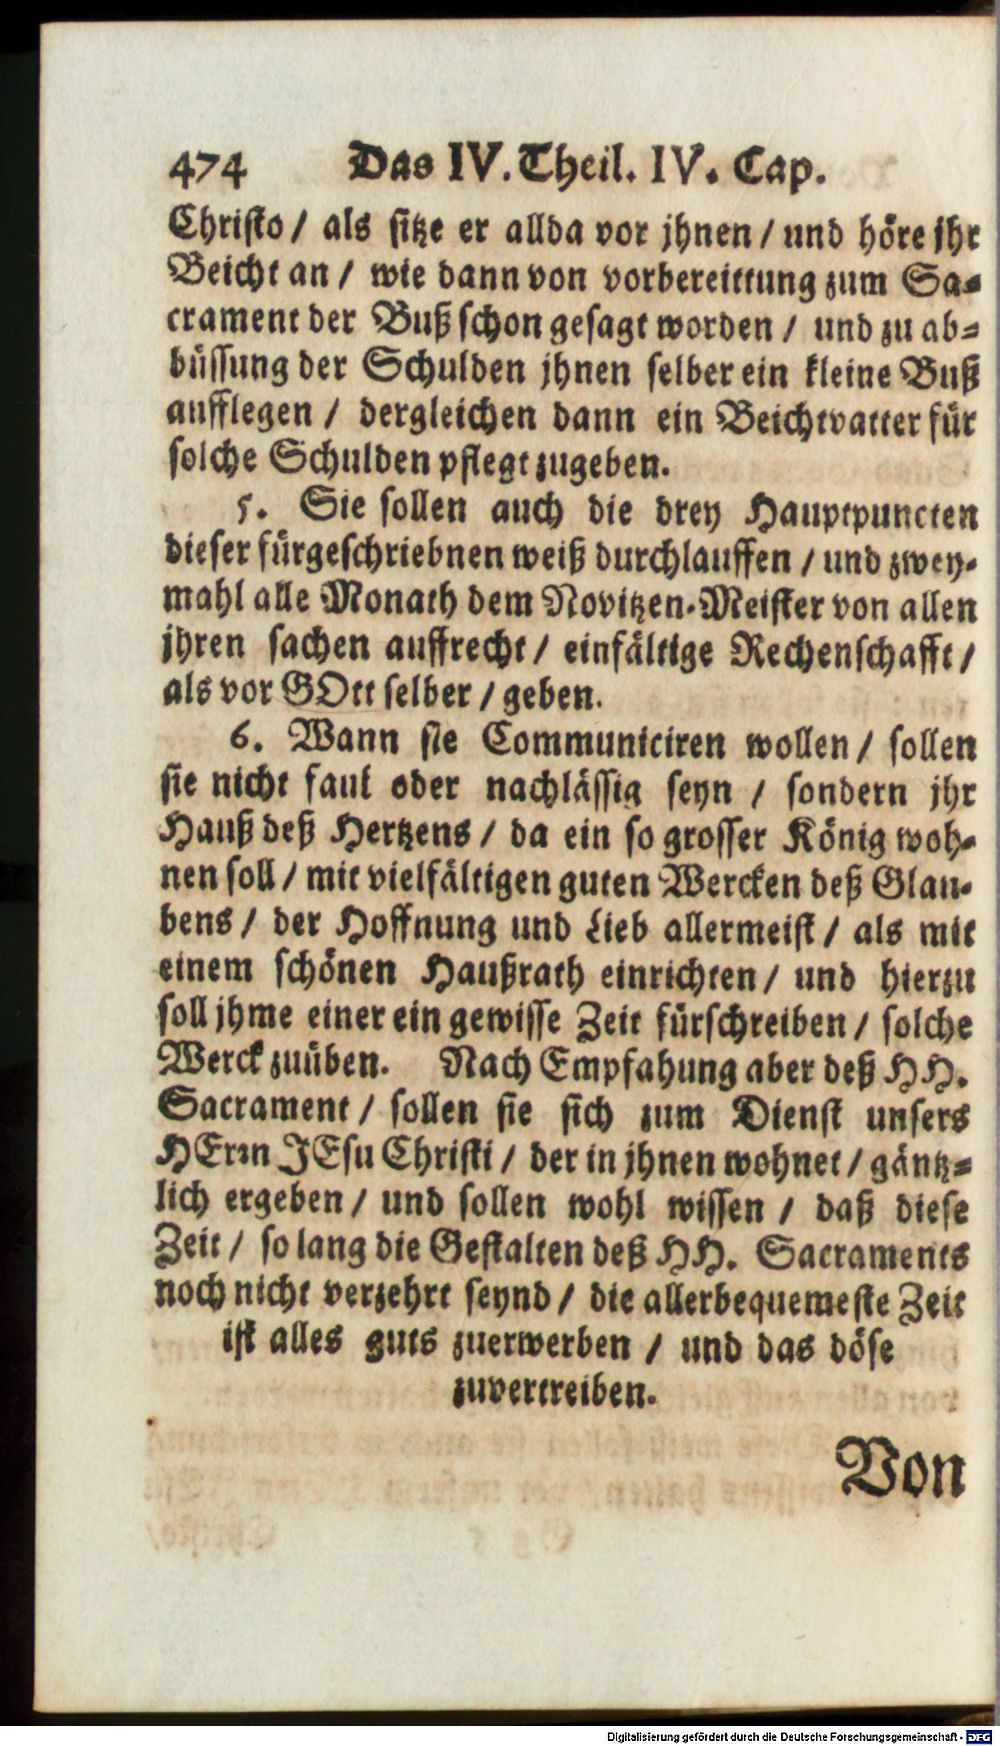 474 Das IV. Theil. IV. Cap.
Christo / als sitze er allda vor jhnen / und höre jhr
Beicht an / wie dann von vorbereittung zum Sa-
crament der Buß schon gesagt worden / und zu ab-
büssung der Schulden jhnen selber ein kleine Buß
aufflegen / dergleichen dann ein Beichtvatter für
solche Schulden pflegt zugeben.
5. Sie sollen auch die drey Hauptpuncten
dieser fürgeschriebnen weiß durchlauffen / und zwey-
mahl alle Monath dem Novitzen-Meister von allen
jhren sachen auffrecht / einfältige Rechenschafft /
als vor GOtt selber / geben.
6. Wann sie Communiciren wollen / sollen
sie nicht faul oder nachlässig seyn / sondern jhr
Hauß deß Hertzens / da ein so grosser König woh-
nen soll / mit vielfältigen guten Wercken deß Glau-
bens / der Hoffnung und Lieb allermeist / als mit
einem schönen Haußrath einrichten / und hierzu
soll jhme einer ein gewisse Zeit fürschreiben / solche
Werck zuüben. Nach Empfahung aber deß HH.
Sacrament / sollen sie sich zum Dienst unsers
HErrn JEsu Christi / der in jhnen wohnet / gäntz-
lich ergeben / und sollen wohl wissen / daß diese
Zeit / so lang die Gestalten deß HH. Sacraments
noch nicht verzehrt seynd / die allerbequemeste Zeit
ist alles guts zuerwerben / und das böse
zuvertreiben.
Von
Digitalisierung gefördert durch die Deutsche Forschungsgemeinschaft - DFG